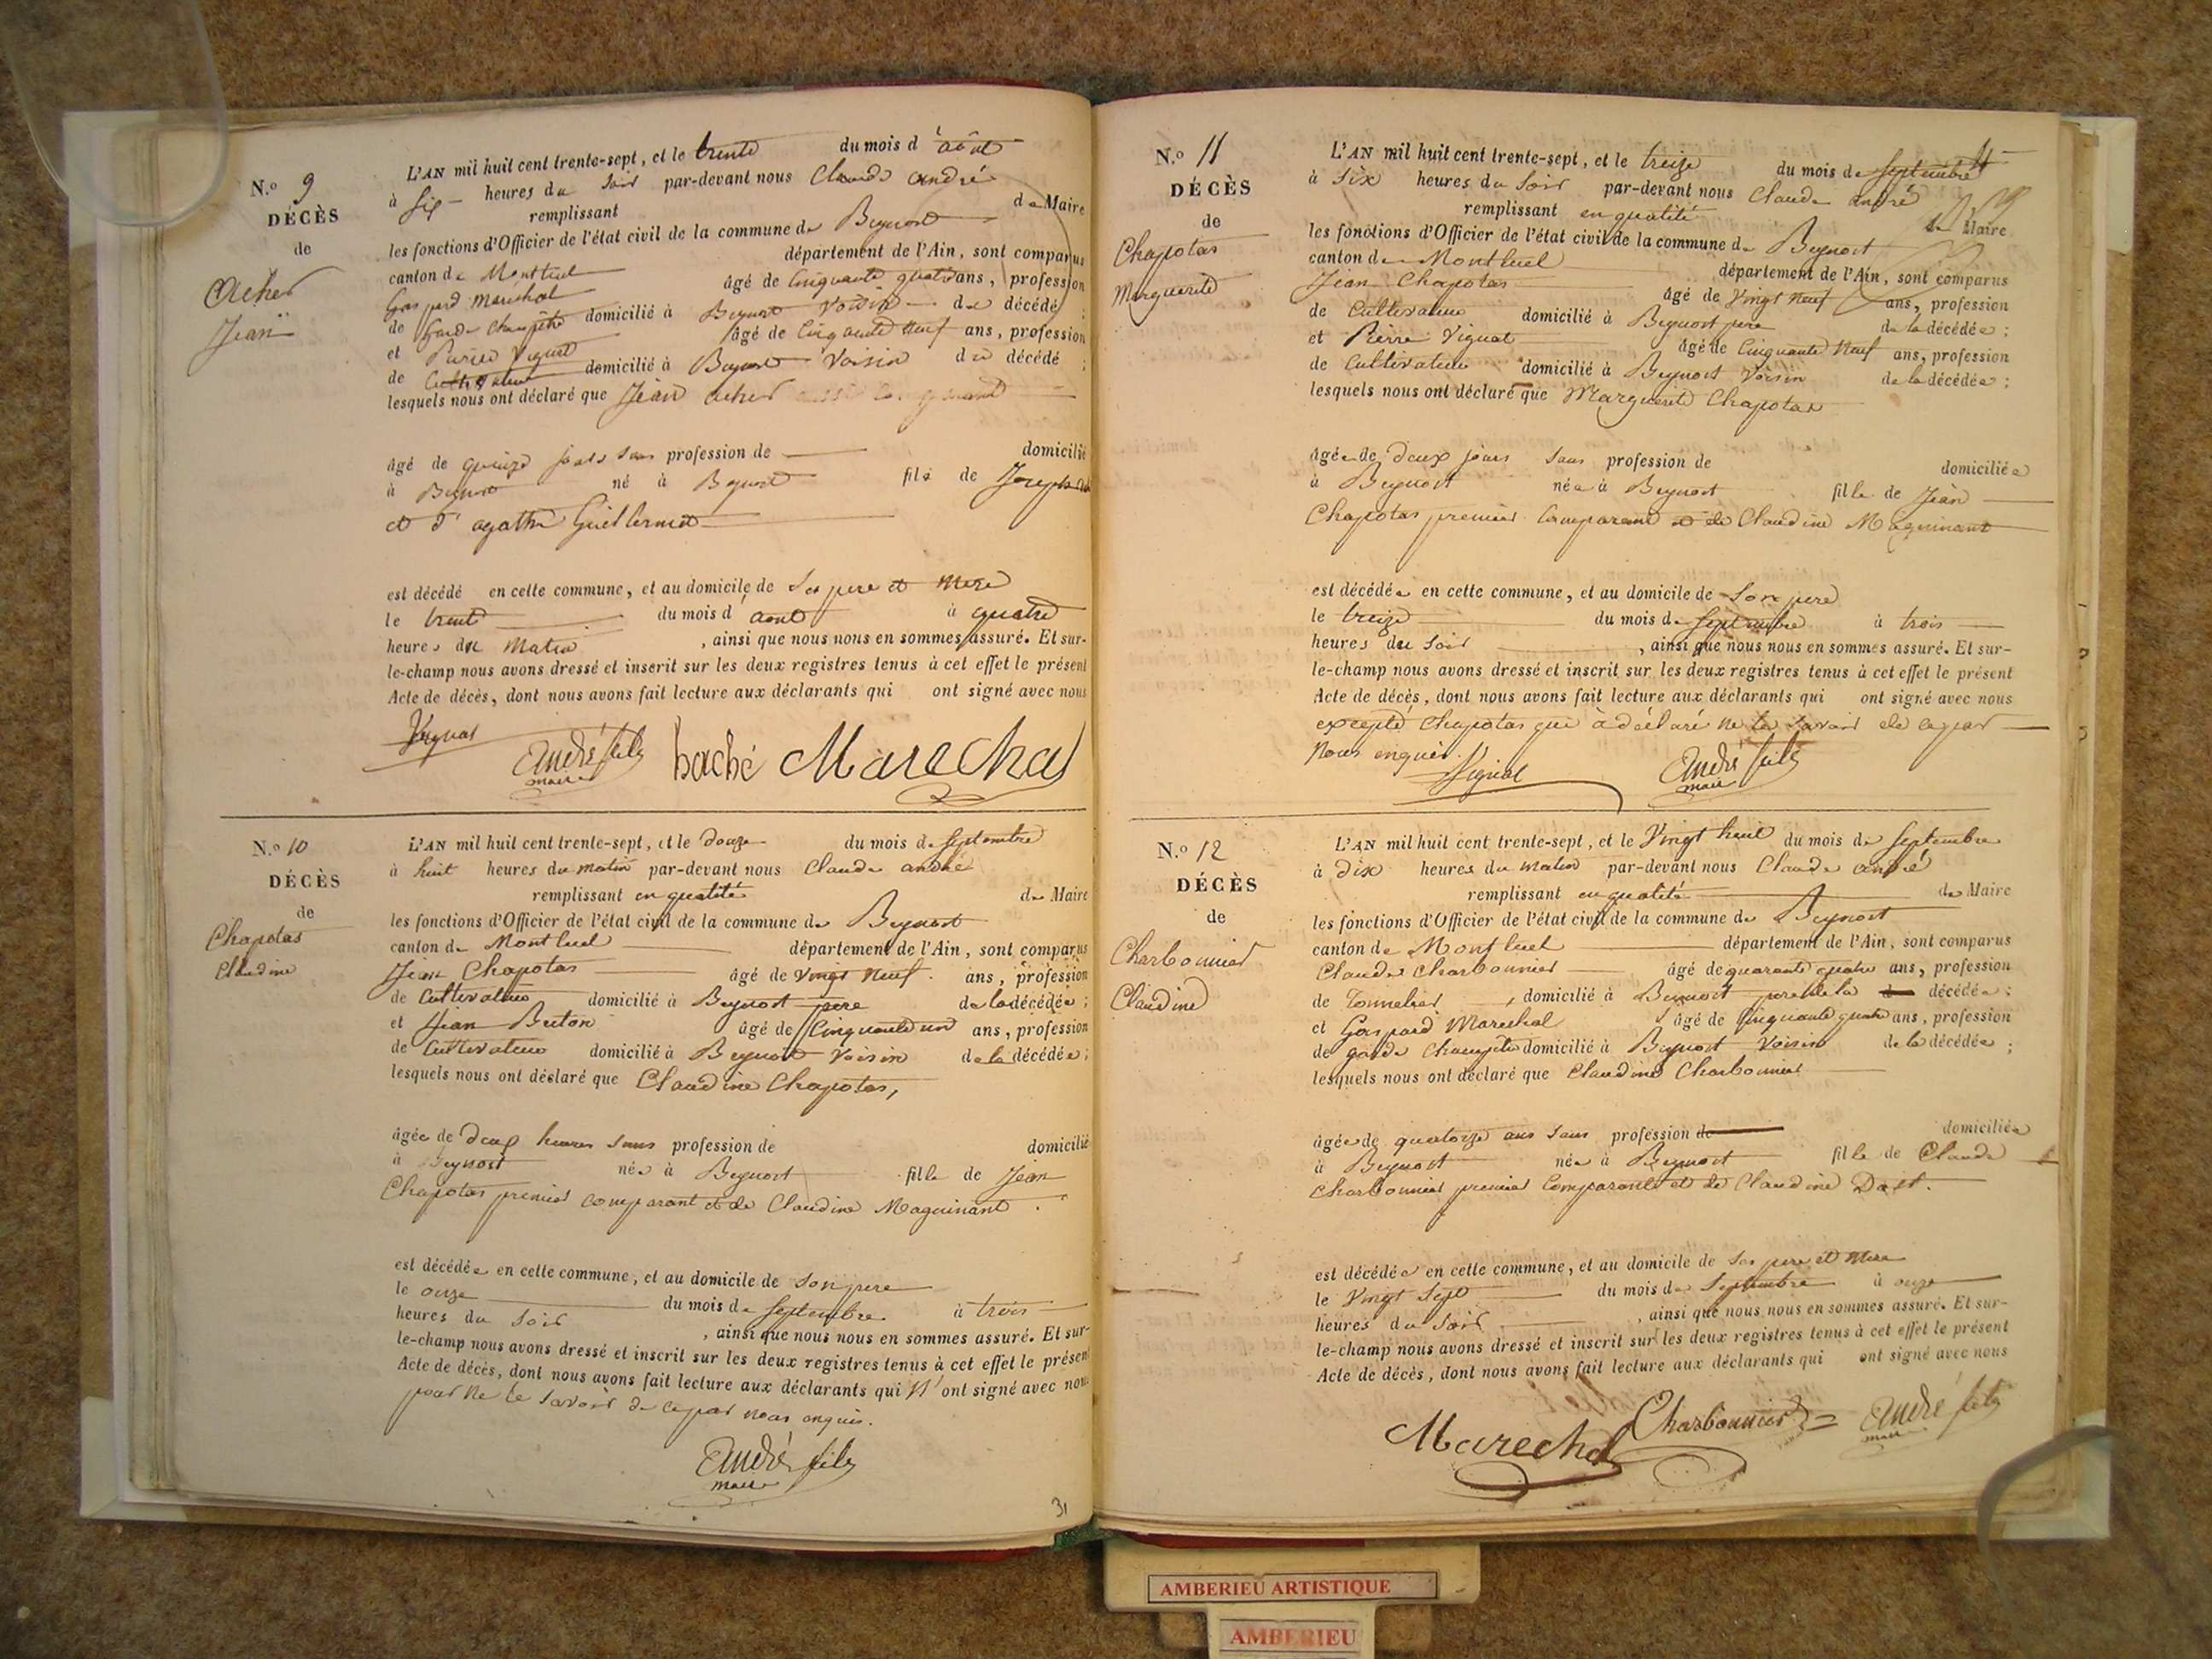 N.o 9
DÉCÈS
de
Acher
Jean
L'AN mil huit cent trente-sept, et le trente du mois d'août
à six heures du soir par-devant nous Claude andré
remplissant de Maire
les fonctions d'Officier de l'état civil de la commune de Beynost
canton de Montluel département de l'Ain, sont comparus
Gaspard Maréchal âgé de Cinquante quatre ans, profession
de Garde Champêtre domicilié à Beynost Voisin du décédé ;
et Pierre Vignat âgé de Cinquante neuf ans, profession
de Cultivateur domicilié à Beynost Voisin du décédé ;
lesquels nous ont déclaré que Jean acher
âgé de quinze jours sans profession de domicilié
à Beynost né à Beynost fils de Joseph
et d'agathe Guillermet
est décédé en cette commune, et au domicile de Ses pere et Mere
le trente du mois d'aout à quatre
heures du Matin , ainsi que nous nous en sommes assuré. Et sur-
le-champ nous avons dressé et inscrit sur les deux registres tenus à cet effet le présent
Acte de décès, dont nous avons fait lecture aux déclarants qui ont signé avec nous
Vignat André fils haché Marechal
maire
N.o 10
DÉCÈS
de
Chapotas
Claudine
L'AN mil huit cent trente-sept, et le douze du mois de Septembre
à huit heures du matin par-devant nous Claude andré
remplissant en qualité de Maire
les fonctions d'Officier de l'état civil de la commune de Beynost
canton de Montluel département de l'Ain, sont comparus
Jean Chapotas âgé de vingt Neuf ans, profession
de Cultivateur domicilié à Beynost pere de la décédée ;
et Jean Buton âgé de Cinquante un ans, profession
de Cultivateur domicilié à Beynost Voisin de la décédée ;
lesquels nous ont déclaré que Claudine Chapotas,
âgée de deux heures sans profession de domicilié
à Beynost née à Beynost fille de Jean
Chapotas premier comparant et de Claudine Maguinant.
est décédée en cette commune, et au domicile de Son pere
le onze du mois de Septembre à trois
heures du Soir , ainsi que nous nous en sommes assuré. Et sur-
le-champ nous avons dressé et inscrit sur les deux registres tenus à cet effet le présent
Acte de décès, dont nous avons fait lecture aux déclarants qui N'ont signé avec nous
pour ne le savoir de ce par nous enquis.
André fils
maire
31
N.o 11
DÉCÈS
de
Chapotas
Marguerite
L'AN mil huit cent trente-sept, et le treize du mois de Septembre
à Six heures du Soir par-devant nous Claude andré
remplissant en qualité de Maire
les fonctions d'Officier de l'état civil de la commune de Beynost
canton de Montluel département de l'Ain, sont comparus
Jean Chapotas âgé de Vingt neuf ans, profession
de Cultivateur domicilié à Beynost pere de la décédée ;
et Pierre Vignat âgé de Cinquante Neuf ans, profession
de Cultivateur domicilié à Beynost Voisin de la décédée ;
lesquels nous ont déclaré que Marguerite Chapotas
âgée de deux jours Sans profession de domiciliée
à Beynost née à Beynost fille de Jean
Chapotas premier Comparant et de Claudine Maguinant
est décédée en cette commune, et au domicile de Son pere
le treize du mois de Septembre à trois
heures du Soir , ainsi que nous nous en sommes assuré. Et sur-
le-champ nous avons dressé et inscrit sur les deux registres tenus à cet effet le présent
Acte de décès, dont nous avons fait lecture aux déclarants qui ont signé avec nous
excepté Chapotas qui à déclaré ne le Savoir de ce par
Nous enquis.
Vignat André fils
maire
N.o 12
DÉCÈS
de
Charbonnier
Claudine
L'AN mil huit cent trente-sept, et le Vingt huit du mois de Septembre
à dix heures du matin par-devant nous Claude andré
remplissant en qualité de Maire
les fonctions d'Officier de l'état civil de la commune de Beynost
canton de Montluel département de l'Ain, sont comparus
Claude Charbonnier âgé de quarante quatre ans, profession
de Tonnelier , domicilié à Beynost pere de la décédée ;
et Gaspard Marechal âgé de Cinquante quatre ans, profession
de garde Champêtre domicilié à Beynost Voisin de la décédée ;
lesquels nous ont déclaré que Claudine Charbonnier
âgée de quatorze ans Sans profession de domiciliée
à Beynost née à Beynost fille de Claude
Charbonnier premier Comparant et de Claudine
est décédée en cette commune, et au domicile de Ses pere et Mere
le Vingt Sept du mois de Septembre à onze
heures du Soir , ainsi que nous nous en sommes assuré. Et sur-
le-champ nous avons dressé et inscrit sur les deux registres tenus à cet effet le présent
Acte de décès, dont nous avons fait lecture aux déclarants qui ont signé avec nous
Marechal Charbonnier André fils
maire
AMBERIEU ARTISTIQUE
AMBERIEU